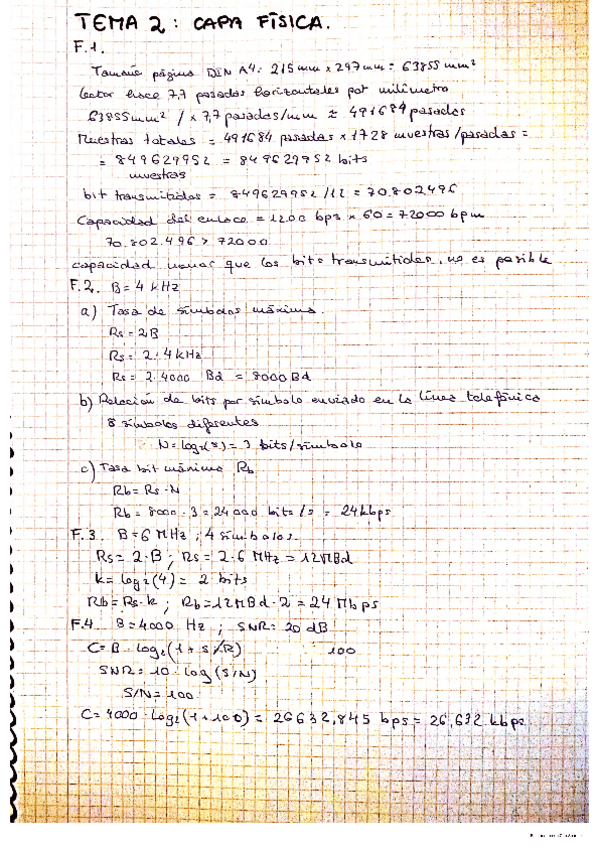 TEMA 2: CAPA FÍSICA.
F.1.
Tamaño página DIN A4: 215mm x 297mm = 63855 mm²
lector hace 7,7 pasadas horizontales por milímetro
63855mm² / x 7,7 pasadas/mm ≈ 491684 pasadas
Muestras totales = 491684 pasadas x 1728 muestras/pasadas =
= 849629952 = 849629952 bits
muestras
bit transmitidos = 849629952 /12 = 70.802496
Capacidad del enlace = 1200 bps x 60 = 72000 bpm
70.802.496 > 72000
capacidad menor que los bits transmitidos, no es posible
F.2. B = 4 kHz
a) Tasa de símbolos máxima.
Rs = 2B
Rs = 2·4 kHz
Rs = 2·4000 Bd = 8000 Bd
b) Relación de bits por símbolo enviado en la línea telefónica
8 símbolos diferentes
N = log₂(8) = 3 bits/símbolo
c) Tasa bit máxima Rb
Rb = Rs·N
Rb = 8000·3 = 24000 bits/s = 24kbps
F.3. B = 6 MHz ; 4 símbolos.
Rs = 2·B ; Rs = 2·6 MHz = 12MBd
k = log₂(4) = 2 bits
Rb = Rs·k ; Rb = 12MBd·2 = 24 Mbps
F.4. B = 4000 Hz ; SNR = 20 dB
C = B·log₂(1 + S/R) 100
SNR = 10·log(S/N)
S/N = 100
C = 4000·log₂(1+100) = 26632,845 bps = 26,632 kbps